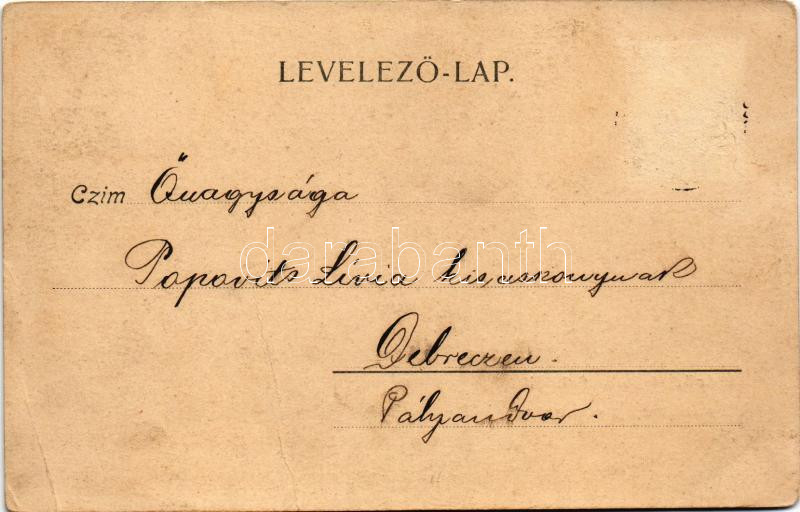 LEVELEZŐ-LAP.
Czim Őnagysága
Popovits Lívia kisasszonynak
darabanth
Debreczen.
Pályaudvar.